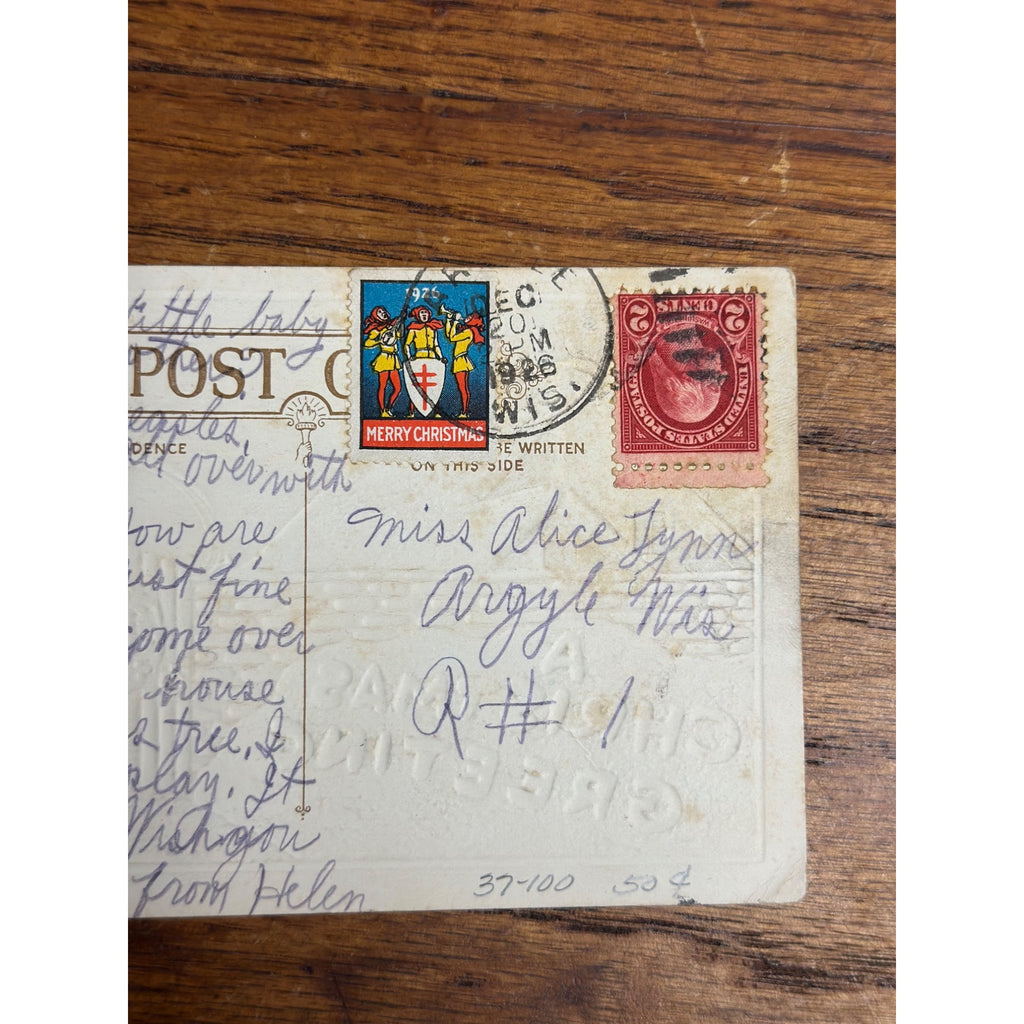 little baby
POST C
DENCE
over with
How are
just fine
come over
house
s tree, I
play. It
Wish you
from Helen
1926
MERRY CHRISTMAS
DEC
20
M
1926
WIS.
BE WRITTEN
ON THIS SIDE
2 CENTS 2
UNITED STATES POSTAGE
Miss Alice Lynn
Argyle Wis
R # 1
A
CHRISTMAS
GREETING
37-100 50¢